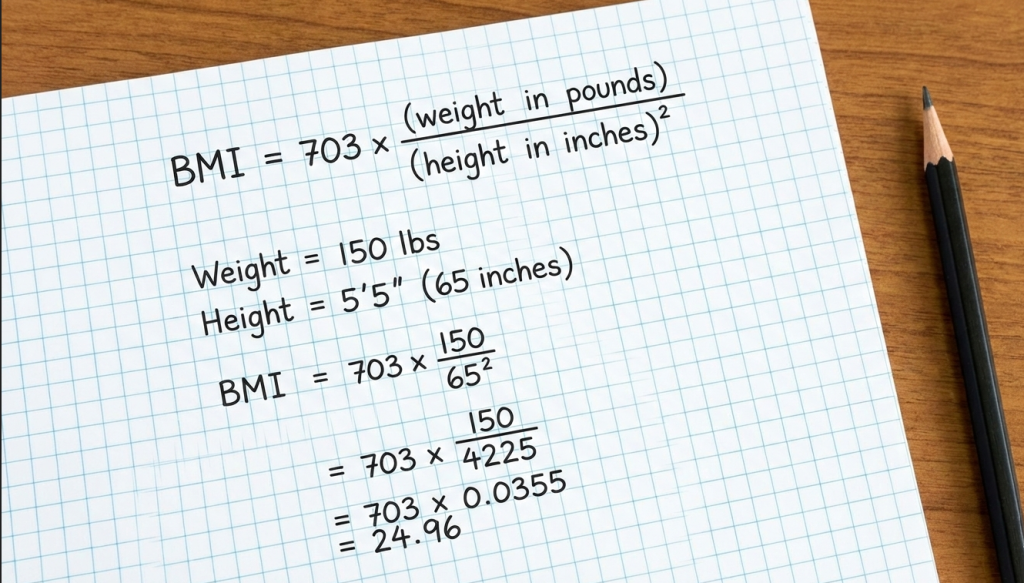 BMI = 703 × (weight in pounds) / (height in inches)²
Weight = 150 lbs
Height = 5'5" (65 inches)
BMI = 703 × 150 / 65²
= 703 × 150 / 4225
= 703 × 0.0355
= 24.96